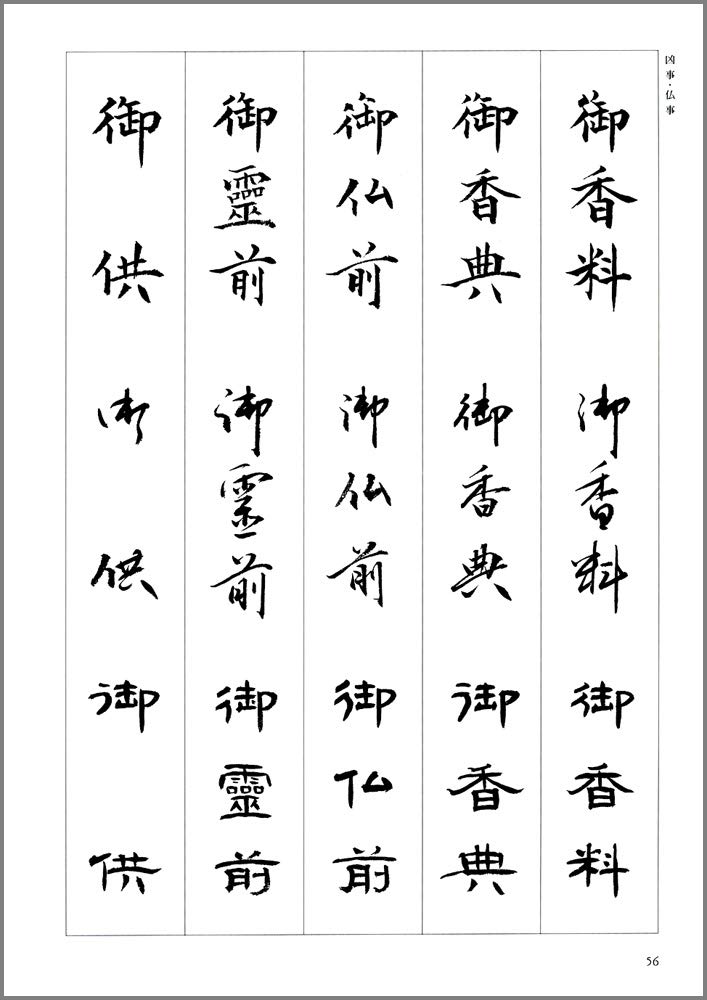 凶事・仏事
御香料
御香料
御香料
御香典
御香典
御香典
御仏前
御仏前
御仏前
御靈前
御靈前
御靈前
御供
御供
御供
56